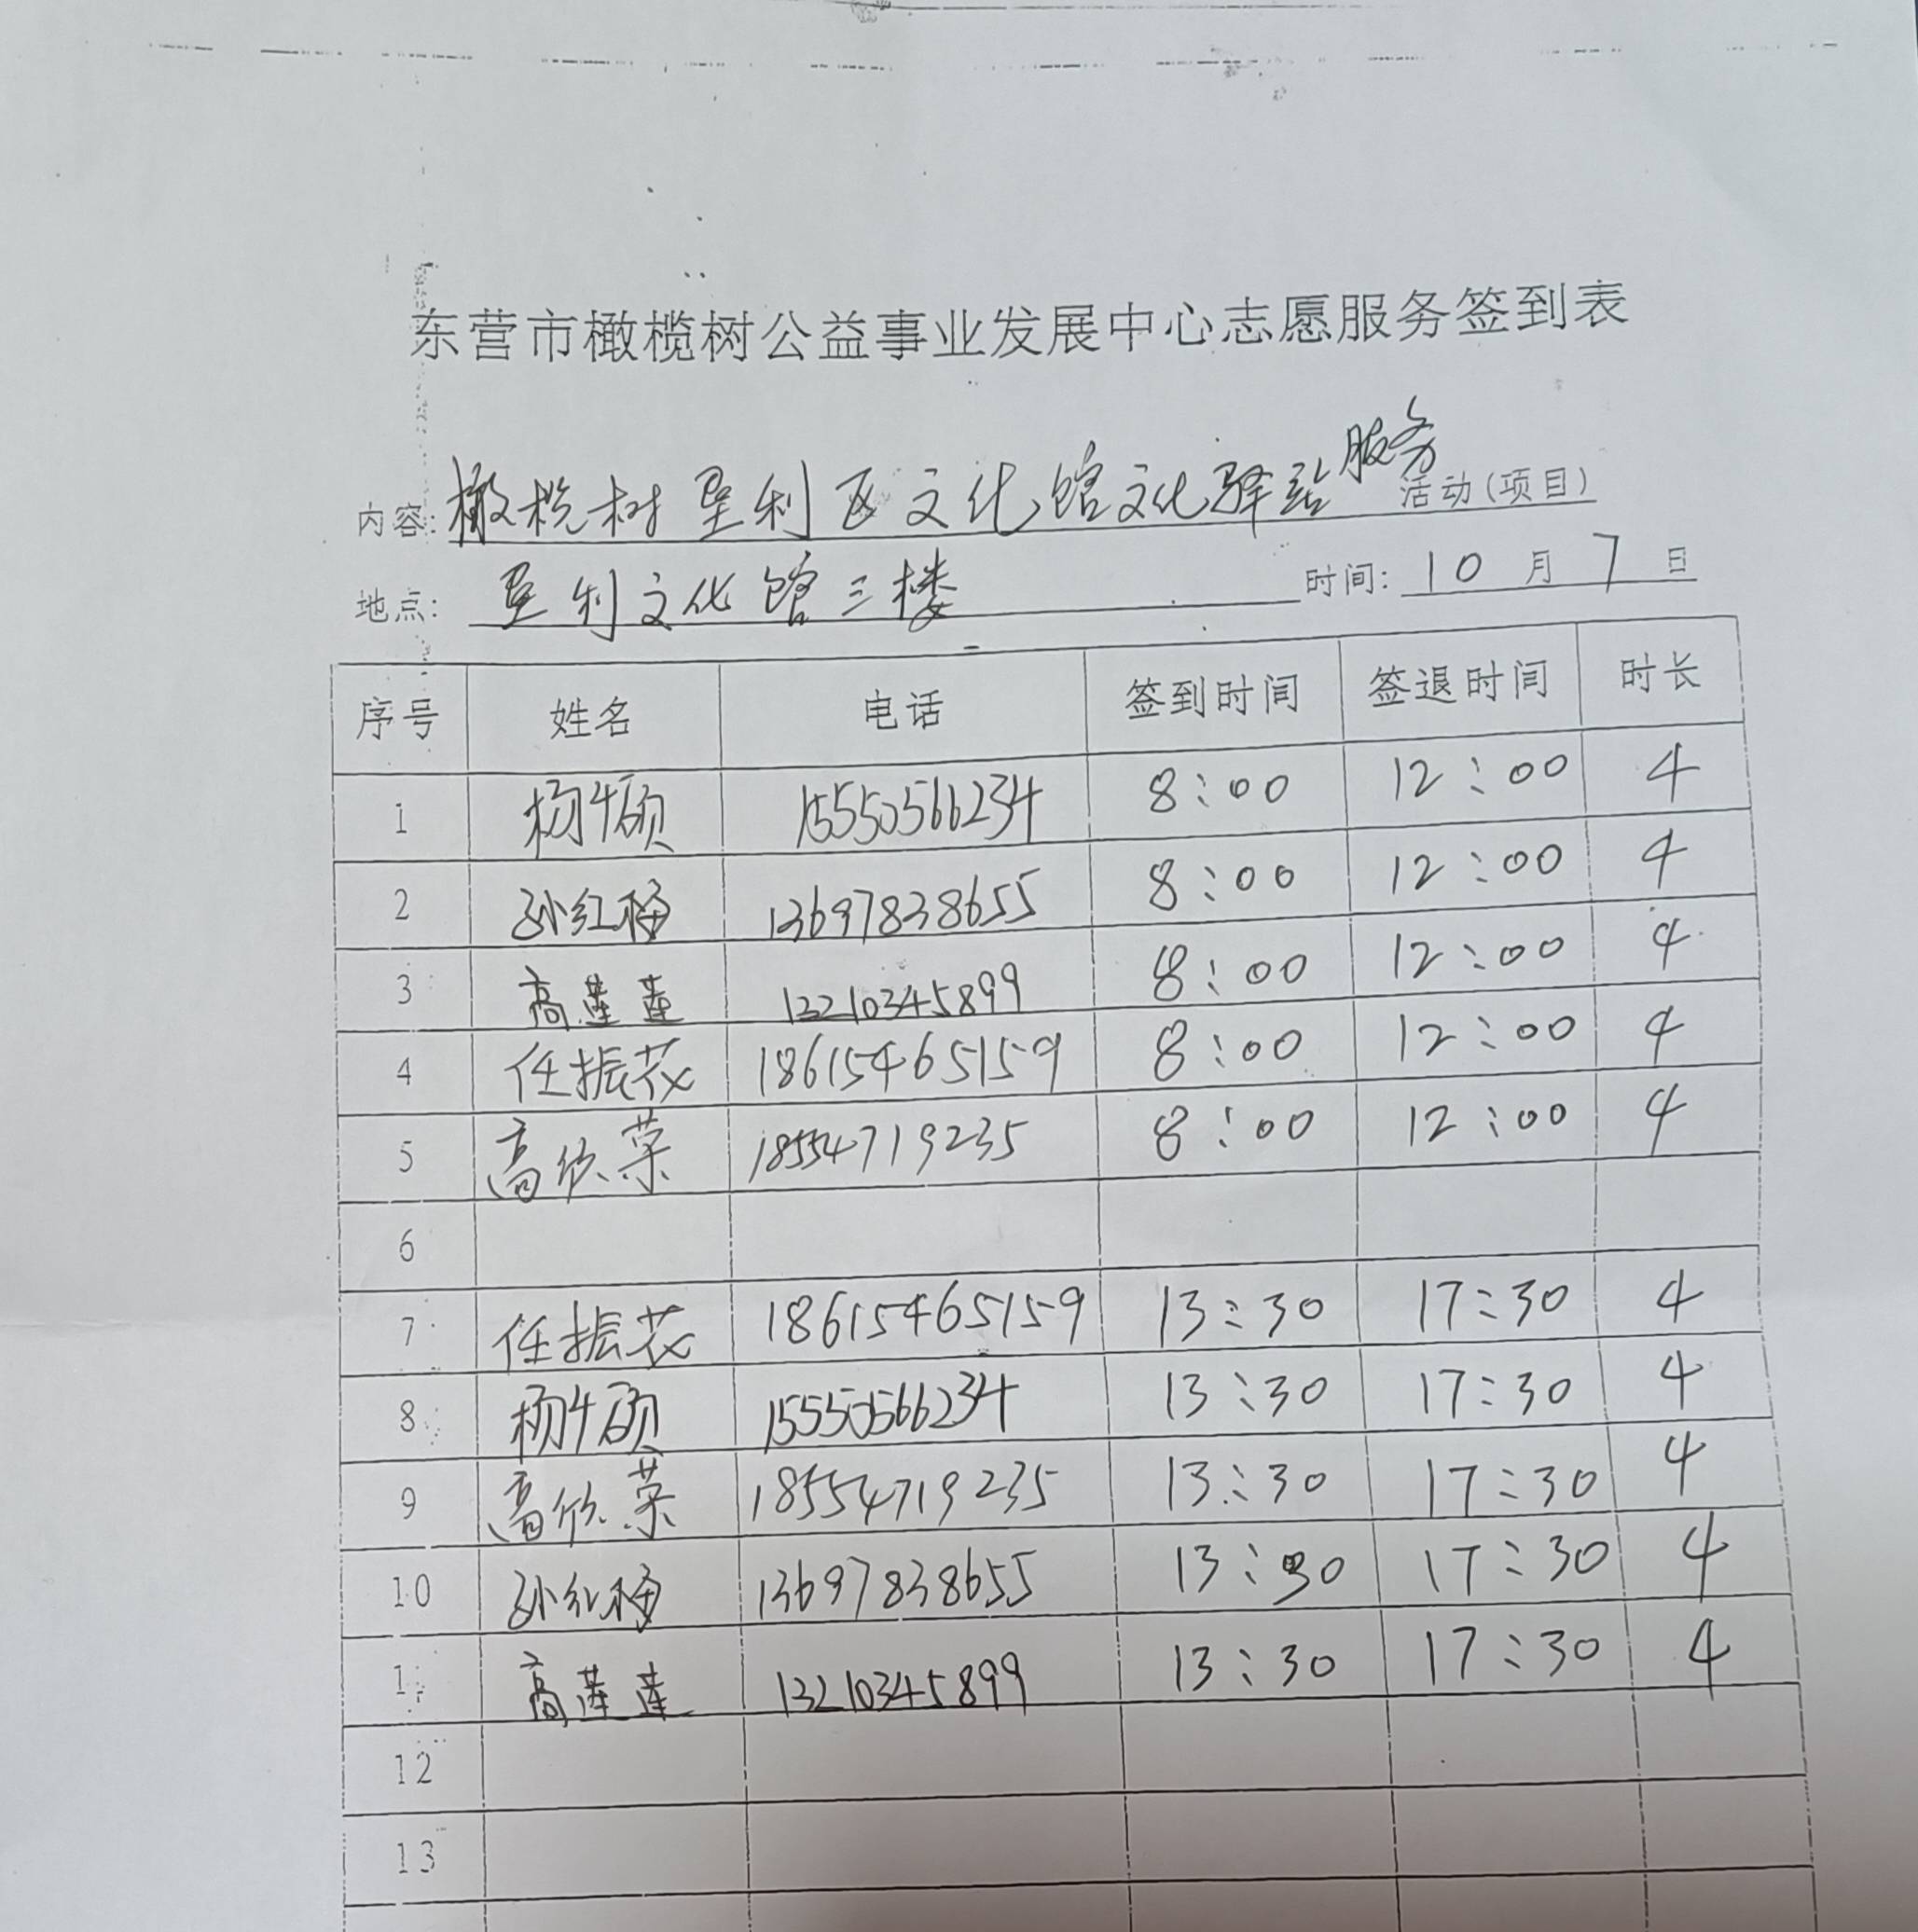 东营市橄榄树公益事业发展中心志愿服务签到表
内容: 橄榄树垦利区文化馆文化驿站服务 活动(项目)
地点: 垦利文化馆三楼 时间: 10月7日
序号 姓名 电话 签到时间 签退时间 时长
1 杨千硕 15550566234 8:00 12:00 4
2 孙红梅 13697838655 8:00 12:00 4
3 高莲莲 13210345899 8:00 12:00 4
4 任振花 18615465159 8:00 12:00 4
5 高欣荣 18554719235 8:00 12:00 4
6
7 任振花 18615465159 13:30 17:30 4
8 杨千硕 15550566234 13:30 17:30 4
9 高欣荣 18554719235 13:30 17:30 4
10 孙红梅 13697838655 13:30 17:30 4
11 高莲莲 13210345899 13:30 17:30 4
12
13